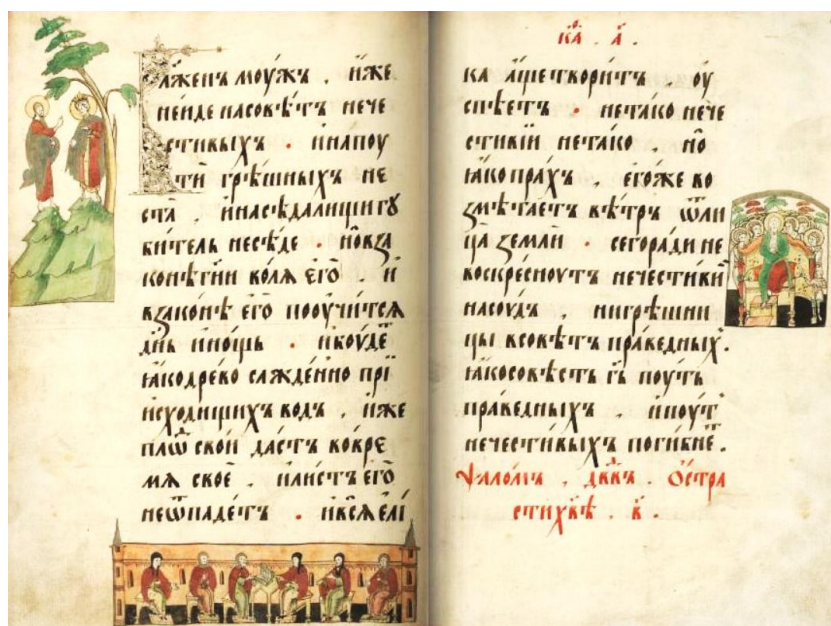 Блаженъ моужъ . иже
неиде насовѣтъ нече
стивыхъ . инапоу
ти грѣшныхъ не
ста . инасѣдалищи гу
битель несѣде . новза
конѣгни воля его . и
взаконѣ его пооучится
днь инощь . ибоуде
ꙗкодрево сажденно при
исходищихъ водъ . иже
плѡ свои дастъ вовре
мя свое . илистъ его
неѿпадетъ . ивсяели
ка а҃
ка аще творитъ . оу
спѣетъ . нетако нече
стивїи нетако . но
ꙗко прахъ . егоже во
змѣтаетъ вѣтръ ѿли
ца земли . сегоради не
воскресноутъ нечестиви
насоудъ . нигрѣшни
цы всовѣтъ праведных .
ꙗкосовѣсть гь поуть
праведныхъ . ипоут
нечестивыхъ погибне .
Ѱаломъ . двдвъ . Ѻстра
стихвѣ . в .